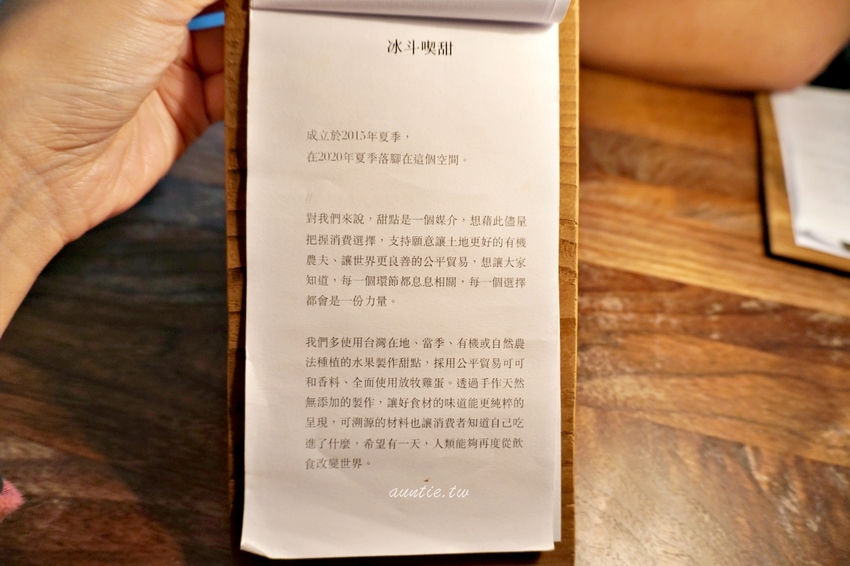 冰斗喫甜
成立於2015年夏季，
在2020年夏季落腳在這個空間。
//
對我們來說，甜點是一個媒介，想藉此儘量
把握消費選擇，支持願意讓土地更好的有機
農夫、讓世界更良善的公平貿易，想讓大家
知道，每一個環節都息息相關，每一個選擇
都會是一份力量。
我們多使用台灣在地、當季、有機或自然農
法種植的水果製作甜點，採用公平貿易可可
和香料、全面使用放牧雞蛋。透過手作天然
無添加的製作，讓好食材的味道能更純粹的
呈現，可溯源的材料也讓消費者知道自己吃
進了什麼，希望有一天，人類能夠再度從飲
食改變世界。
auntie.tw